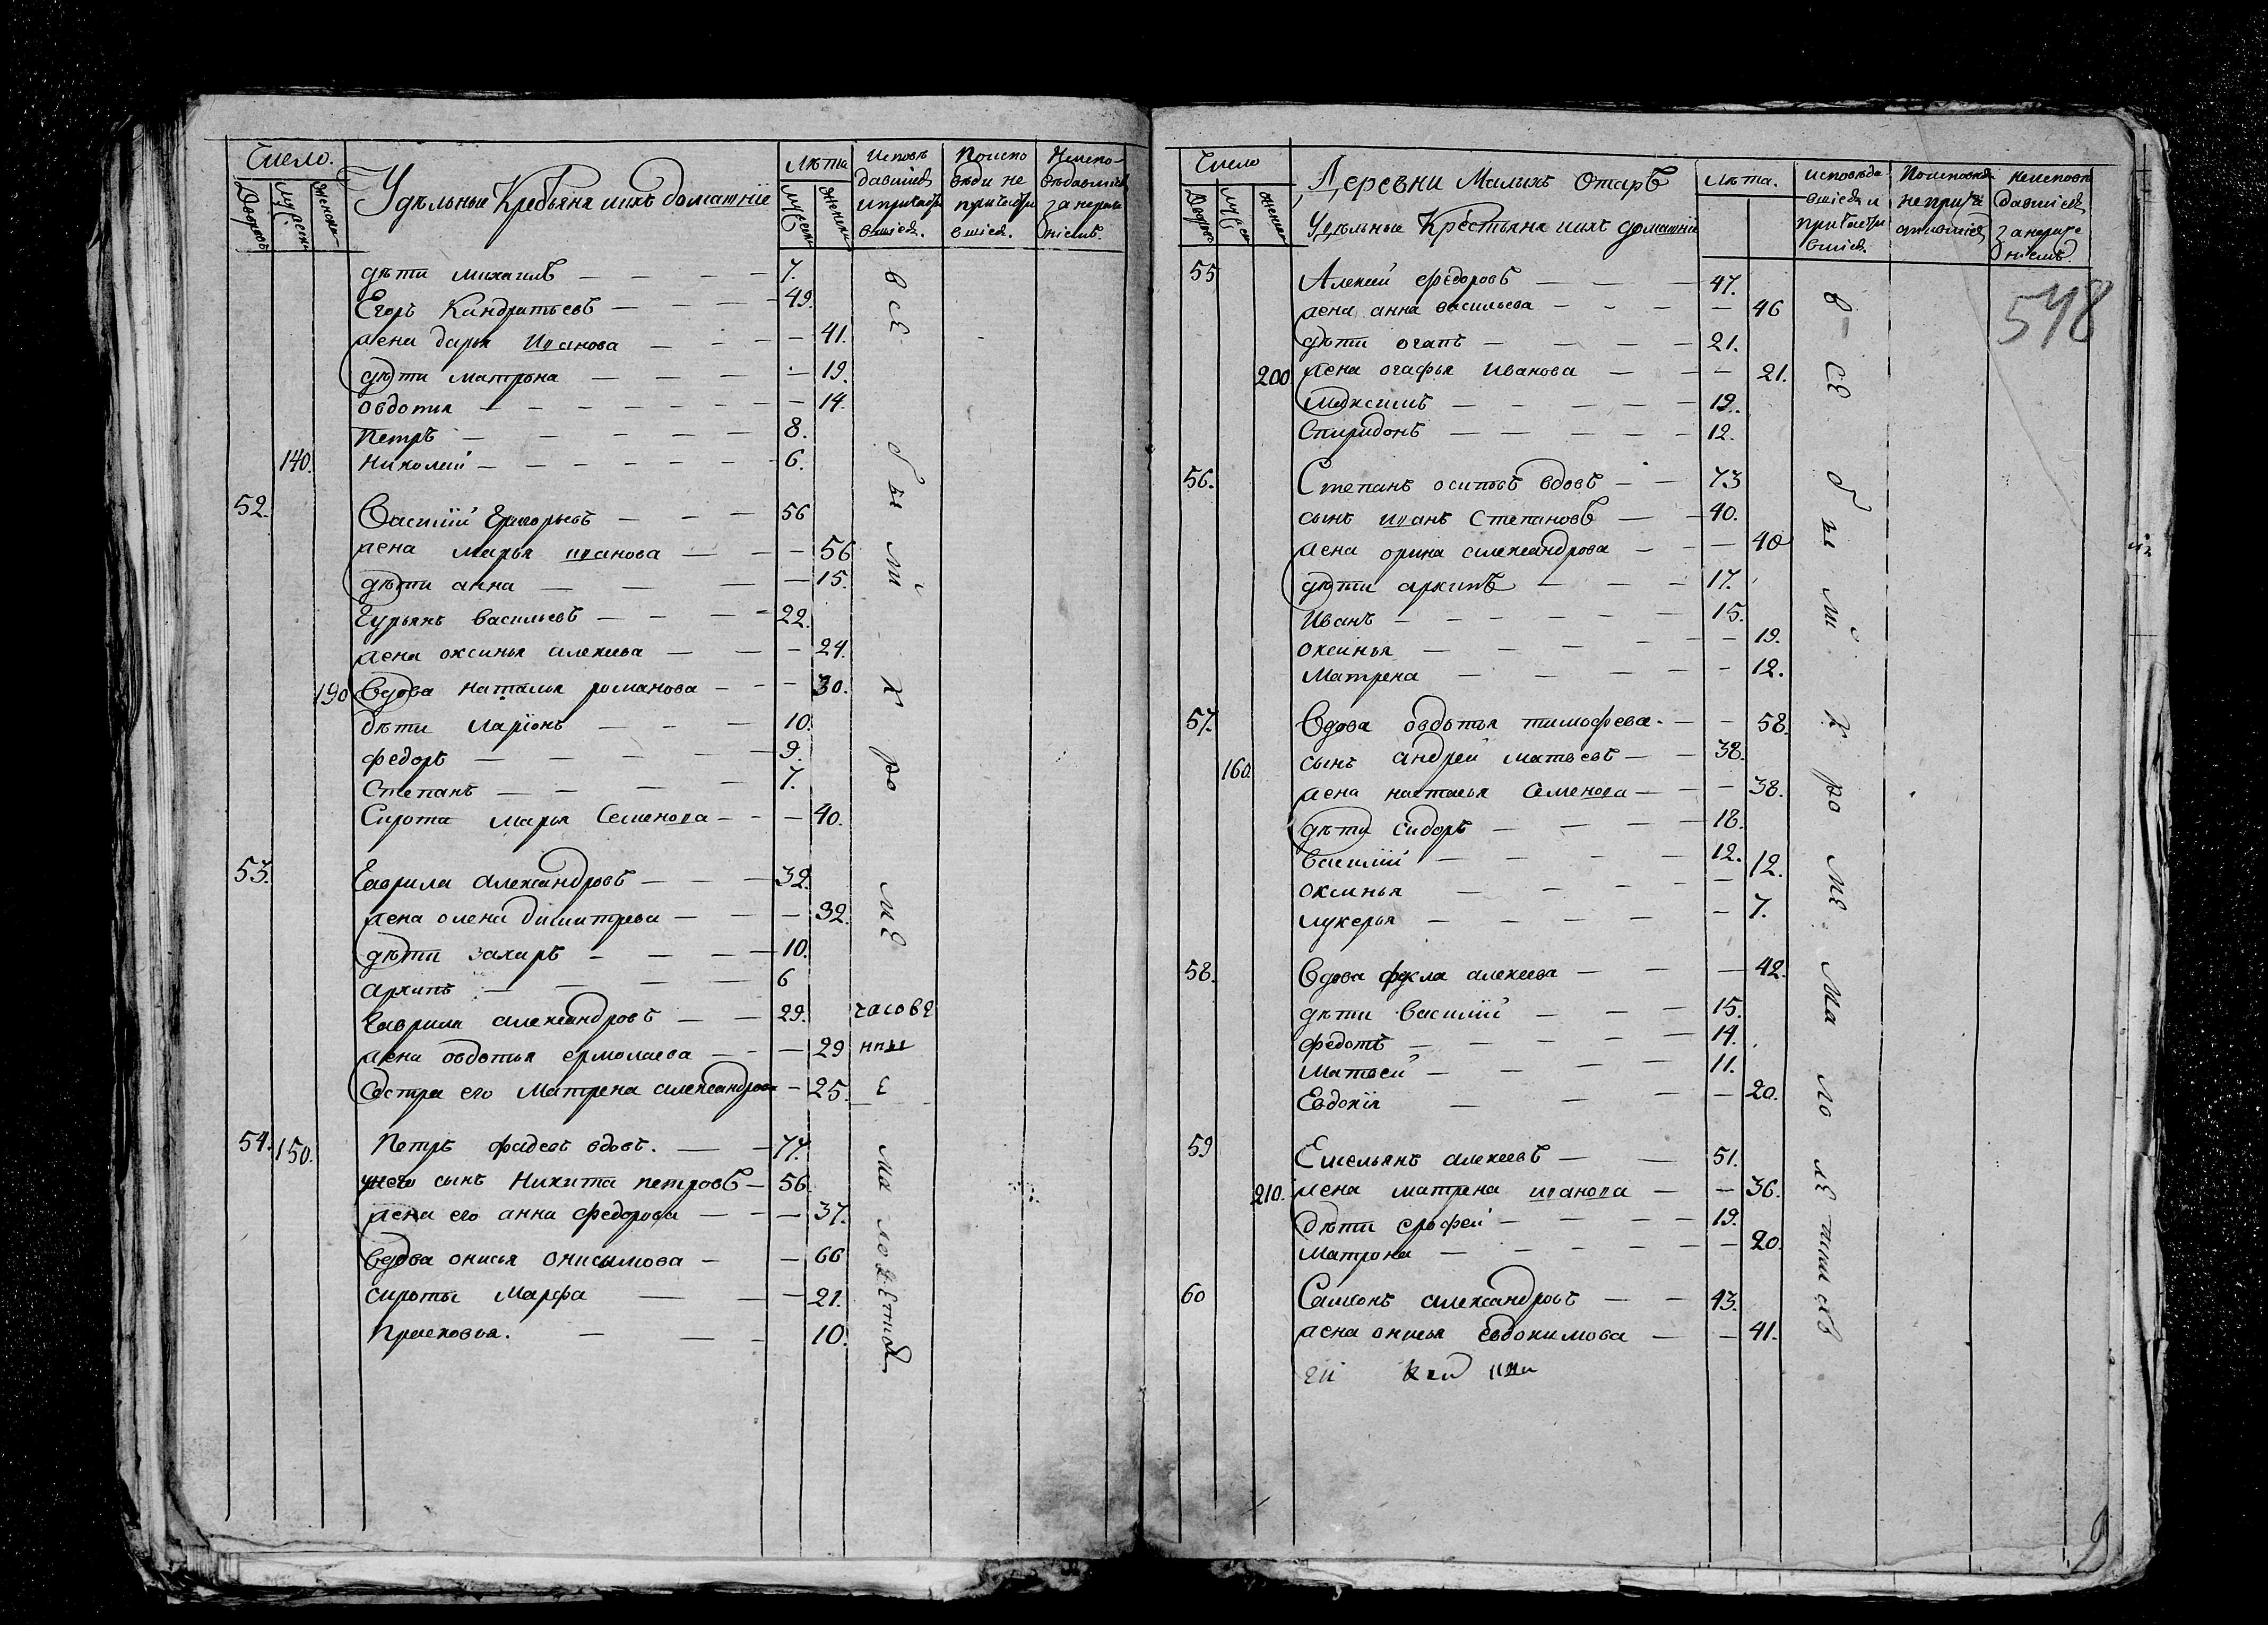 Число.
Дворовъ
Мужеска
Женска
Удѣльные Крестьяне и ихъ домашнїе
Лѣта
Мужеска
Женска
Исповѣ
давшiеся
и причасти
вшiеся.
По испо
вѣди не
причасти
вшiеся.
Не испо-
вѣдавшiеся
за нераде
нiемъ.
дѣти михаилъ — — — 7.
Егоръ Кандратьевъ — — — 49.
жена дарья Иванова — — — 41.
дѣти матрона — — — 19.
овдотья — — — 14.
Петръ — — — 8.
140. николай — — — 6.
52. Василiй Григорьевъ — — — 56
жена марья ивaнова — — — 56
дѣти анна — — — 15.
Гурьянъ васильевъ — — — 22.
жена оксинья алексеева — — — 24.
190 Вдова наталья романова — — — 30.
дѣти Ларiонъ — — — 10.
федоръ — — — 9.
Степанъ — — — 7.
Сирота марья Семенова — — — 40.
53. Гаврила александровъ — — — 32.
жена олена димитрева — — — 32.
дѣти захаръ — — — 10.
архипъ — — — 6
Гаврила александровъ — — 29.
жена овдотья ермолаева — — — 29
Сестра его Матрена александрова — 25.
54. 150. Петръ фадеевъ вдовъ. — — 77.
у него сынъ Никита петровъ — 56.
жена его анна федорова — — — 37.
Вдова онисья онисимова — — 66
сироты Марфа — — — 21.
Прасковья. — — — 10.
всѣ
бы
ли
к
ро
мѣ
часовѣ
нны
е
ма
лолѣтной
Число
Дворовъ
Мужеска
Женска
Деревни Малыхъ Отаръ
Удѣльные Крестьяне и ихъ домашнiе
Лѣта.
исповѣда
вшiеся и
причасти
вшiеся.
По исповѣди
не прича
стившiеся
не исповѣ
давшiеся
за нераде
нiемъ.
548
55 Алексѣй федоровъ — — — 47.
жена анна васильева — — — 46
дѣти огапъ — — — 21.
200. жена огафья Иванова — — — 21.
Максимъ — — — 19.
Спиридонъ — — — 12.
56. Степанъ осиповъ вдовъ — — 73
сынъ иванъ Степановъ — — 40.
жена орина александрова — — — 40
дѣти архипъ — — — 17.
Иванъ — — — 15.
оксинья — — — 19.
Матрена — — — 12.
57. Вдова овдотья тимофева. — — 58.
сынъ андрей матвеевъ — — 38.
160. жена наталья Семенова — — — 38.
дѣти Сидоръ — — — 18.
василiй — — — 12.
оксинья — — — 12.
лукерья — — — 7.
58. Вдова фекла алексеева — — — 42.
дѣти Василiй — — — 15.
федотъ — — — 14.
Матвей — — — 11.
Евдокiя — — — 20.
59 Емельянъ алексеевъ — — 51.
210. жена матрена иванова — — 36.
дѣти ерофей — — — 19.
Матрона — — — 20.
60 Самсонъ александровъ — — 43.
жена онисья евдокимова — — 41.
всѣ
бы
ли
к
ро
мѣ
ма
ло
лѣ
тныхъ